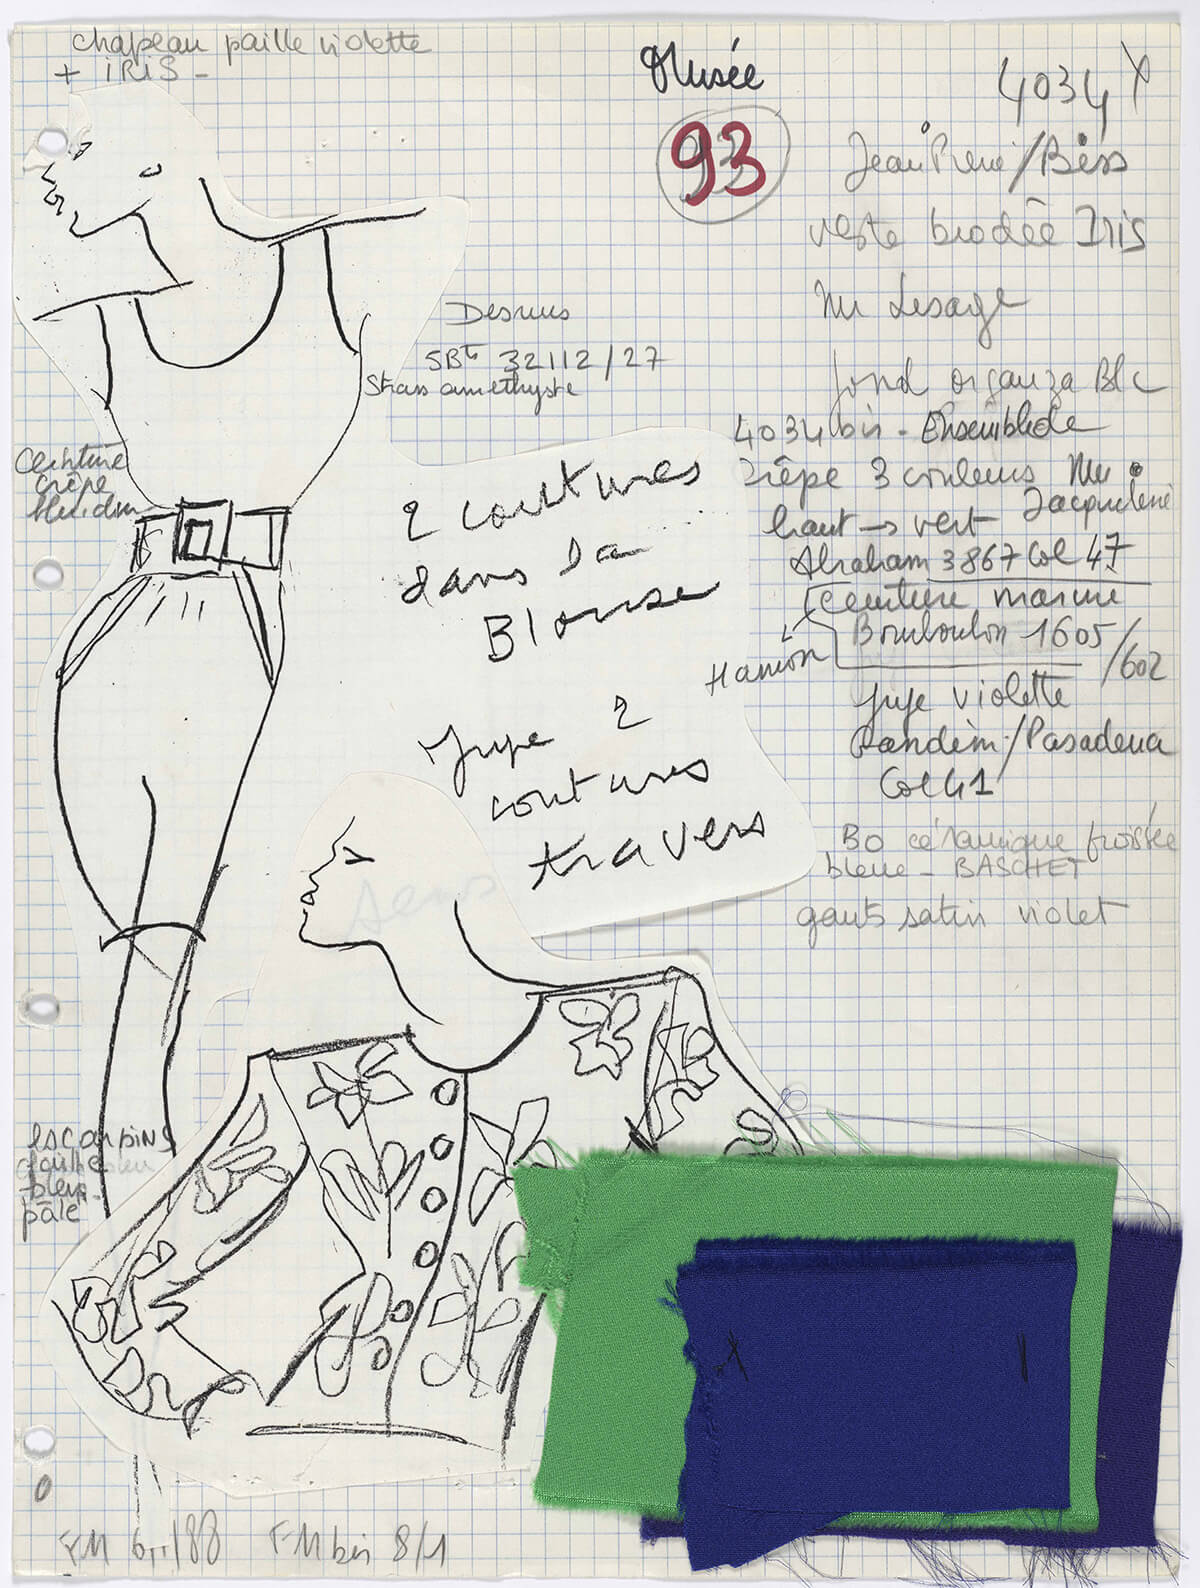 chapeau paille violette
+ IRIS -
Musée
93
4034
Jean Pierre / Béss
veste brodée Iris
Mr Lesage
fond organza Blc
4034 bis - Ensemble de
crêpe 3 couleurs Mme
Jacqueline
haut → vert
Abraham 3867 Col 47
ceinture marine
Bouboulon 1605/602
Hamon
jupe violette
Randem / Pasadena
Col 41
Bo céramique froissée
bleue - BASCHET
gants satin violet
Dessus
SBte 32112/27
Strass amethyste
ceinture
crêpe
2 coutures
dans la
Blouse
Jupe 2
coutures
travers
escarpins
faille
bleu
pâle
FM bis 8/1